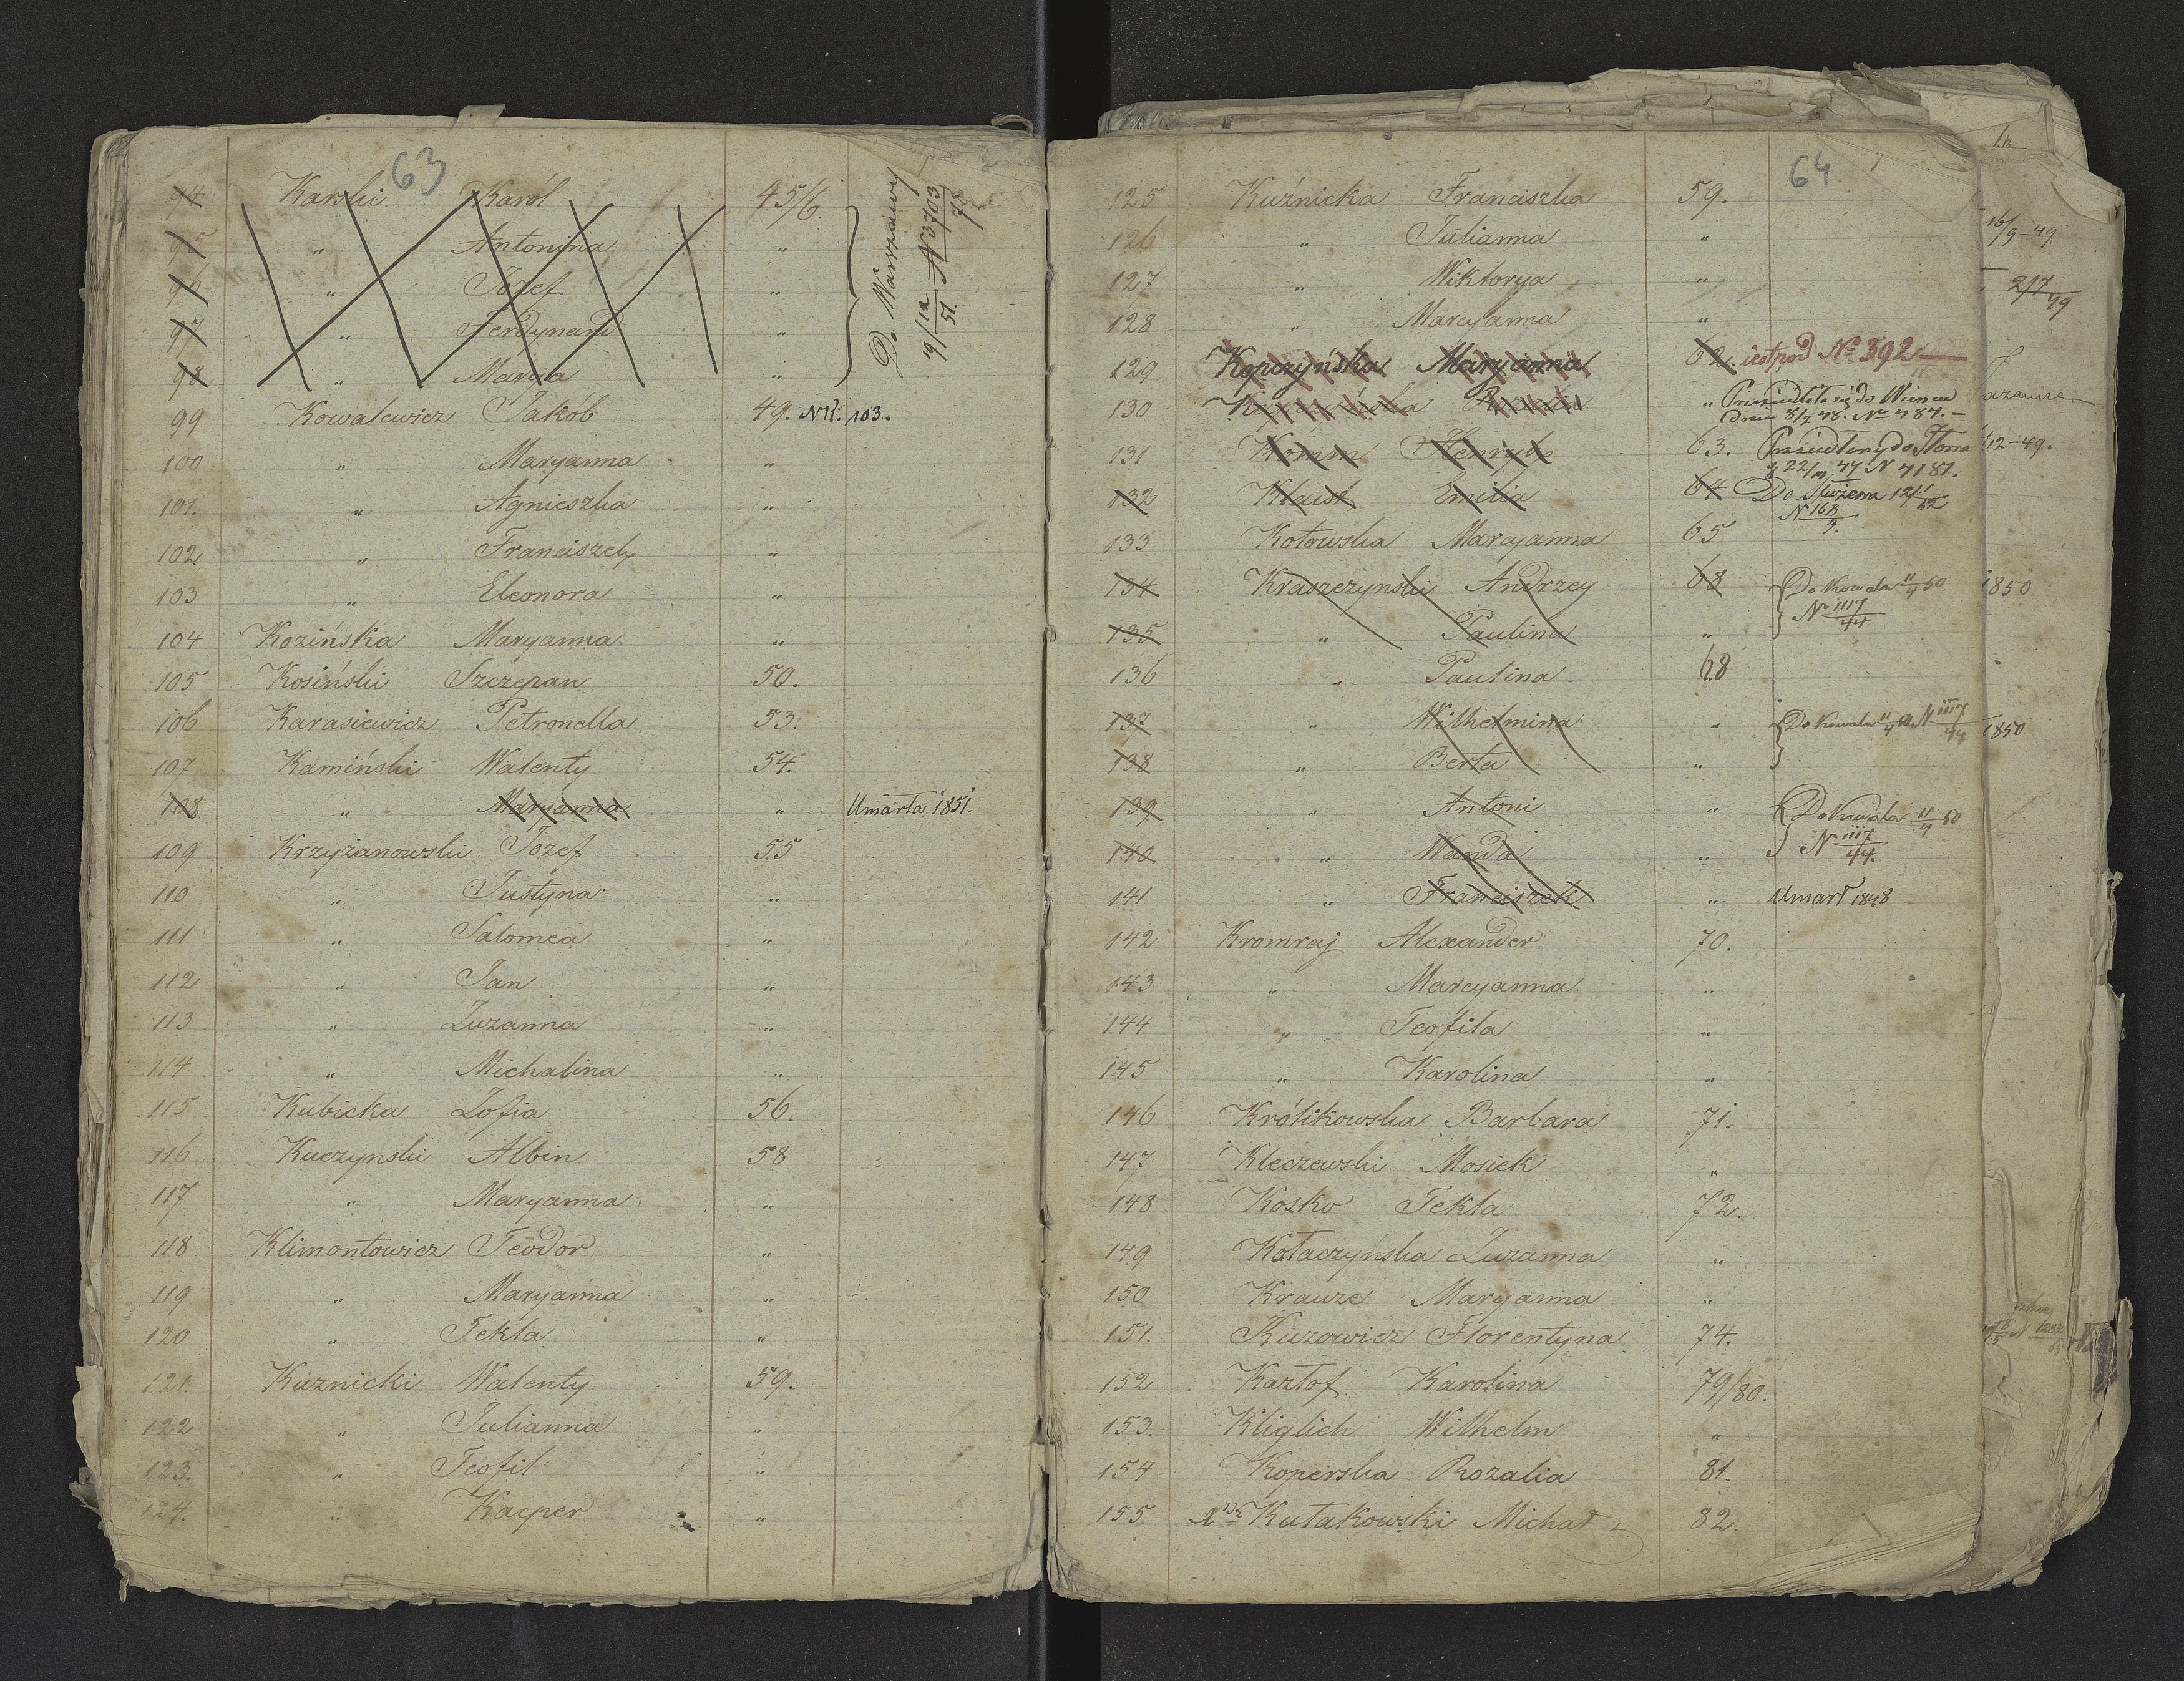 63
94 Karski Karól 45/6. Do Warszawy
95 " Antonina " 19/12 51. N 3703/78
96 " Józef "
97 " Ferdynand "
98 " Maryia "
99 Kowalewicz Jakób 49. NK: 103.
100 " Maryanna "
101. " Agnieszka "
102 " Franciszek "
103 " Eleonora "
104 Kozińska Maryanna "
105 Kosiński Szczepan 50.
106 Karasiewicz Petronella 53.
107 Kamiński Walenty 54.
108 " Maryanna " Umarła 1851.
109 Krzyżanowski Józef 55
110 " Justyna "
111 " Salomea "
112 " Jan "
113 " Zuzanna "
114 " Michalina "
115 Kubicka Zofia 56.
116 Kuczynski Albin 58
117 " Maryanna "
118 Klimontowicz Teodor "
119 " Maryanna "
120 " Tekla "
121. Kuznicki Walenty 59.
122 " Julianna "
123. " Teofil "
124. " Kacper "
64
125 Kuźnicka Franciszka 59.
126 " Julianna "
127 " Wiktorya "
128 " Maryanna "
129 Kopczyńska Maryanna 62. jest pod No 392
130 "
131 Komm Henryk 63.
132 Klaust Emilia 64 Do Służewa 12/1 52
N 168/9.
133 Kotowska Maryanna 65
134 Kraszczynski Andrzey 68 Do Kowala 11/4 50
135 " Paulina " No 1117/44
136 " Paulina 68
137 " Wilhelmina " Do Kowala 11/4 50 N 1117/44
138 " Berta "
139 " Antoni " Do Kowala 11/4 50
140 " Wanda " N 1117/44.
141 " Franciszek " Umarł 1848
142 Kromraj Alexander 70.
143 " Maryanna "
144 " Teofila "
145 " Karolina "
146 Królikowska Barbara 71.
147 Kleczewski Mosiek "
148 Kosko Tekla 72.
149 Kołaczyńska Zuzanna "
150 Krauze Maryanna "
151. Kuzowicz Florentyna 74.
152 Kaztof Karolina 79/80.
153. Kliglich Wilhelm "
154 Koperska Rozalia 81.
155 Kułakowski Michał 82.
16/9-49
2/7 49
12-49.
1850
1850